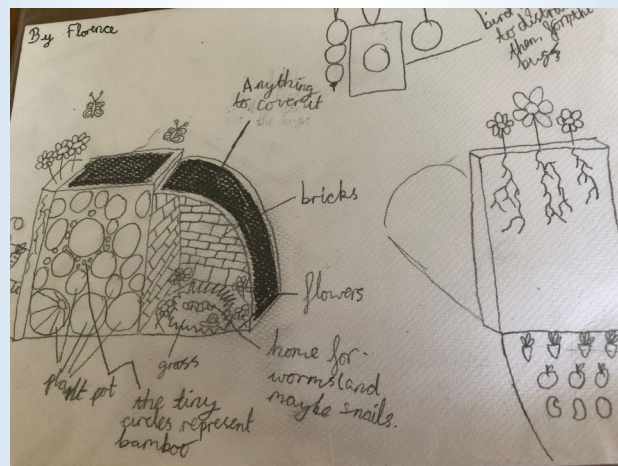 By Florence
bird
to distra
them from the
bugs
Anything
to cover it
bricks
flowers
home for
worms (and
maybe snails.
grass
plant pot
the tiny
circles represent
bamboo